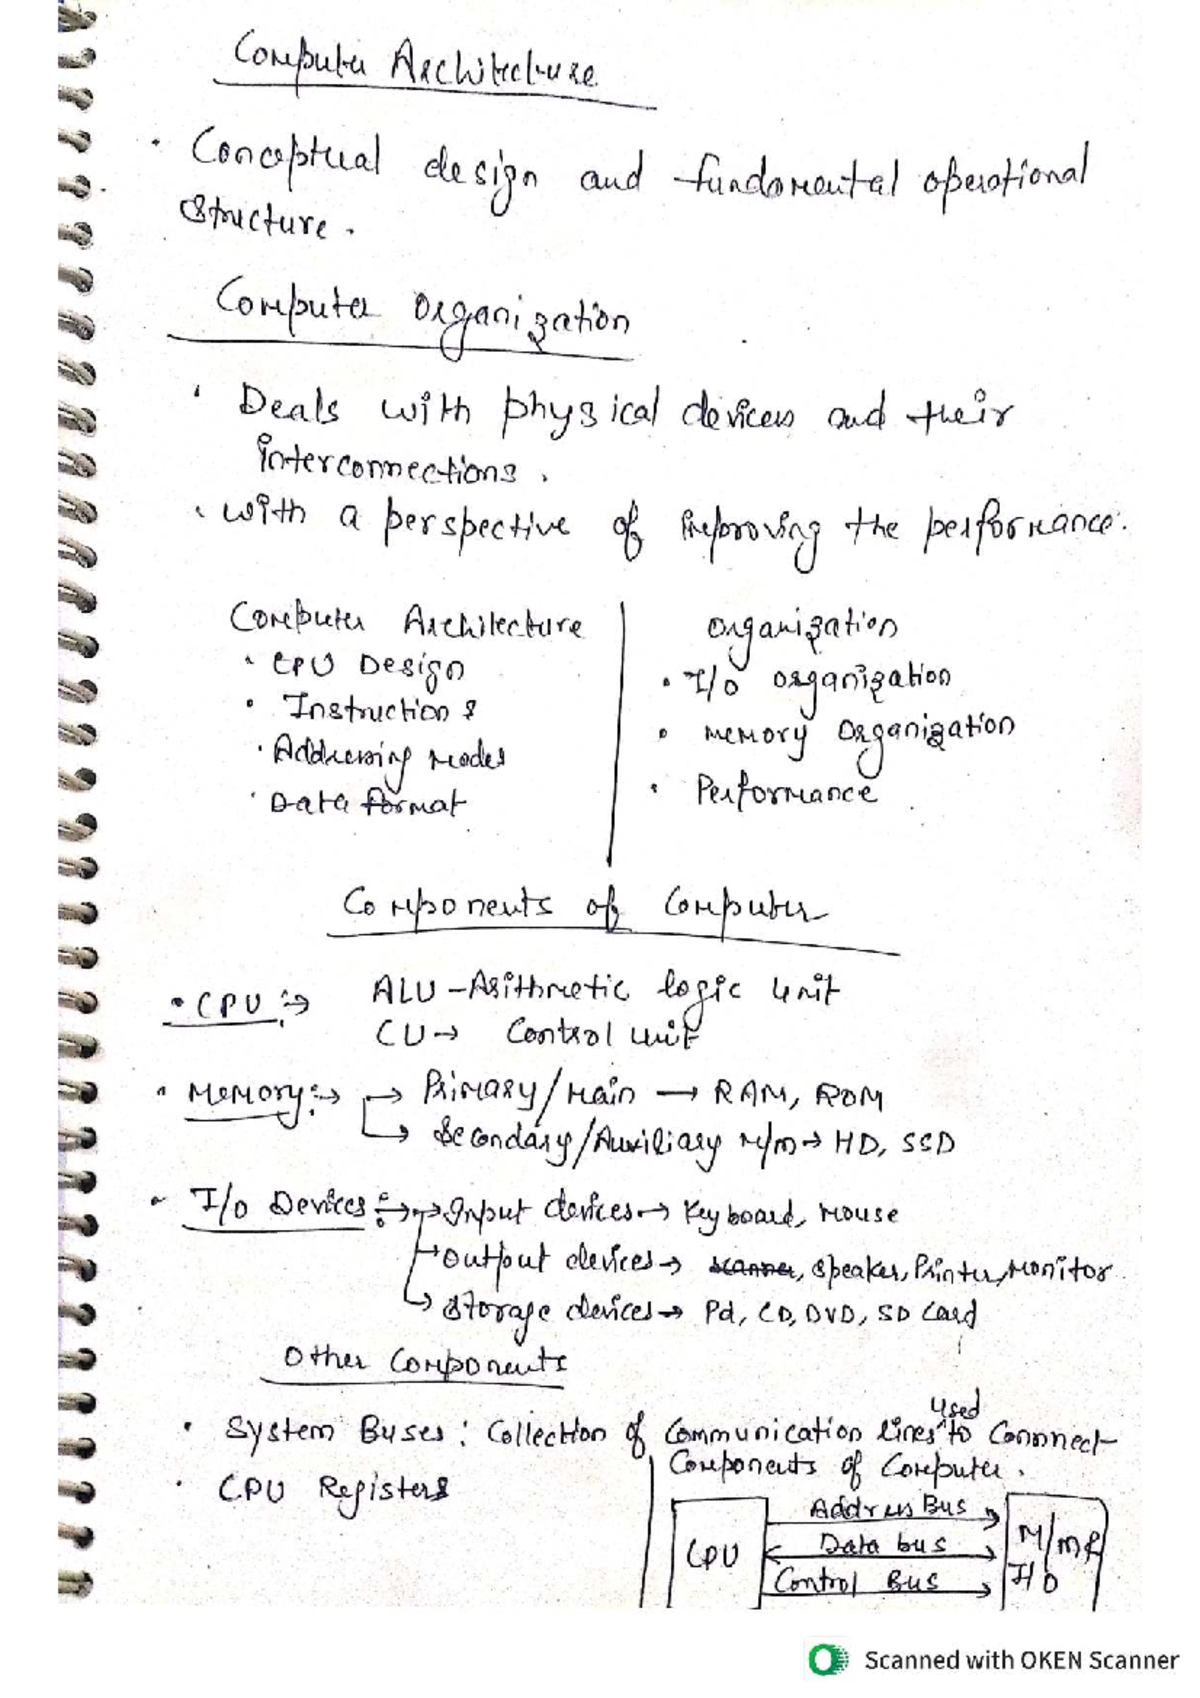 Computer Architecture
• Conceptual design and fundamental operational
structure.
Computer Organization
• Deals with physical devices and their
interconnections.
• with a perspective of improving the performance.
Computer Architecture
• CPU Design
• Instructions
• Addressing modes
• Data format
Organization
• I/O organization
• Memory Organization
• Performance
Components of Computer
• CPU :→ ALU - Arithmetic logic unit
CU → Control unit
• Memory :→ → Primary/Main → RAM, ROM
→ Secondary/Auxiliary M/m → HD, SSD
• I/O Devices :→ → Input devices → Keyboard, Mouse
→ Output devices → scanner, Speaker, Printer, Monitor
→ Storage devices → Pd, CD, DVD, SD Card
Other Components
• System Buses : Collection of Communication lines used to Connnect
Components of Computer.
• CPU Registers
CPU
Address Bus
Data bus
Control Bus
M/m &
I/O
Scanned with OKEN Scanner